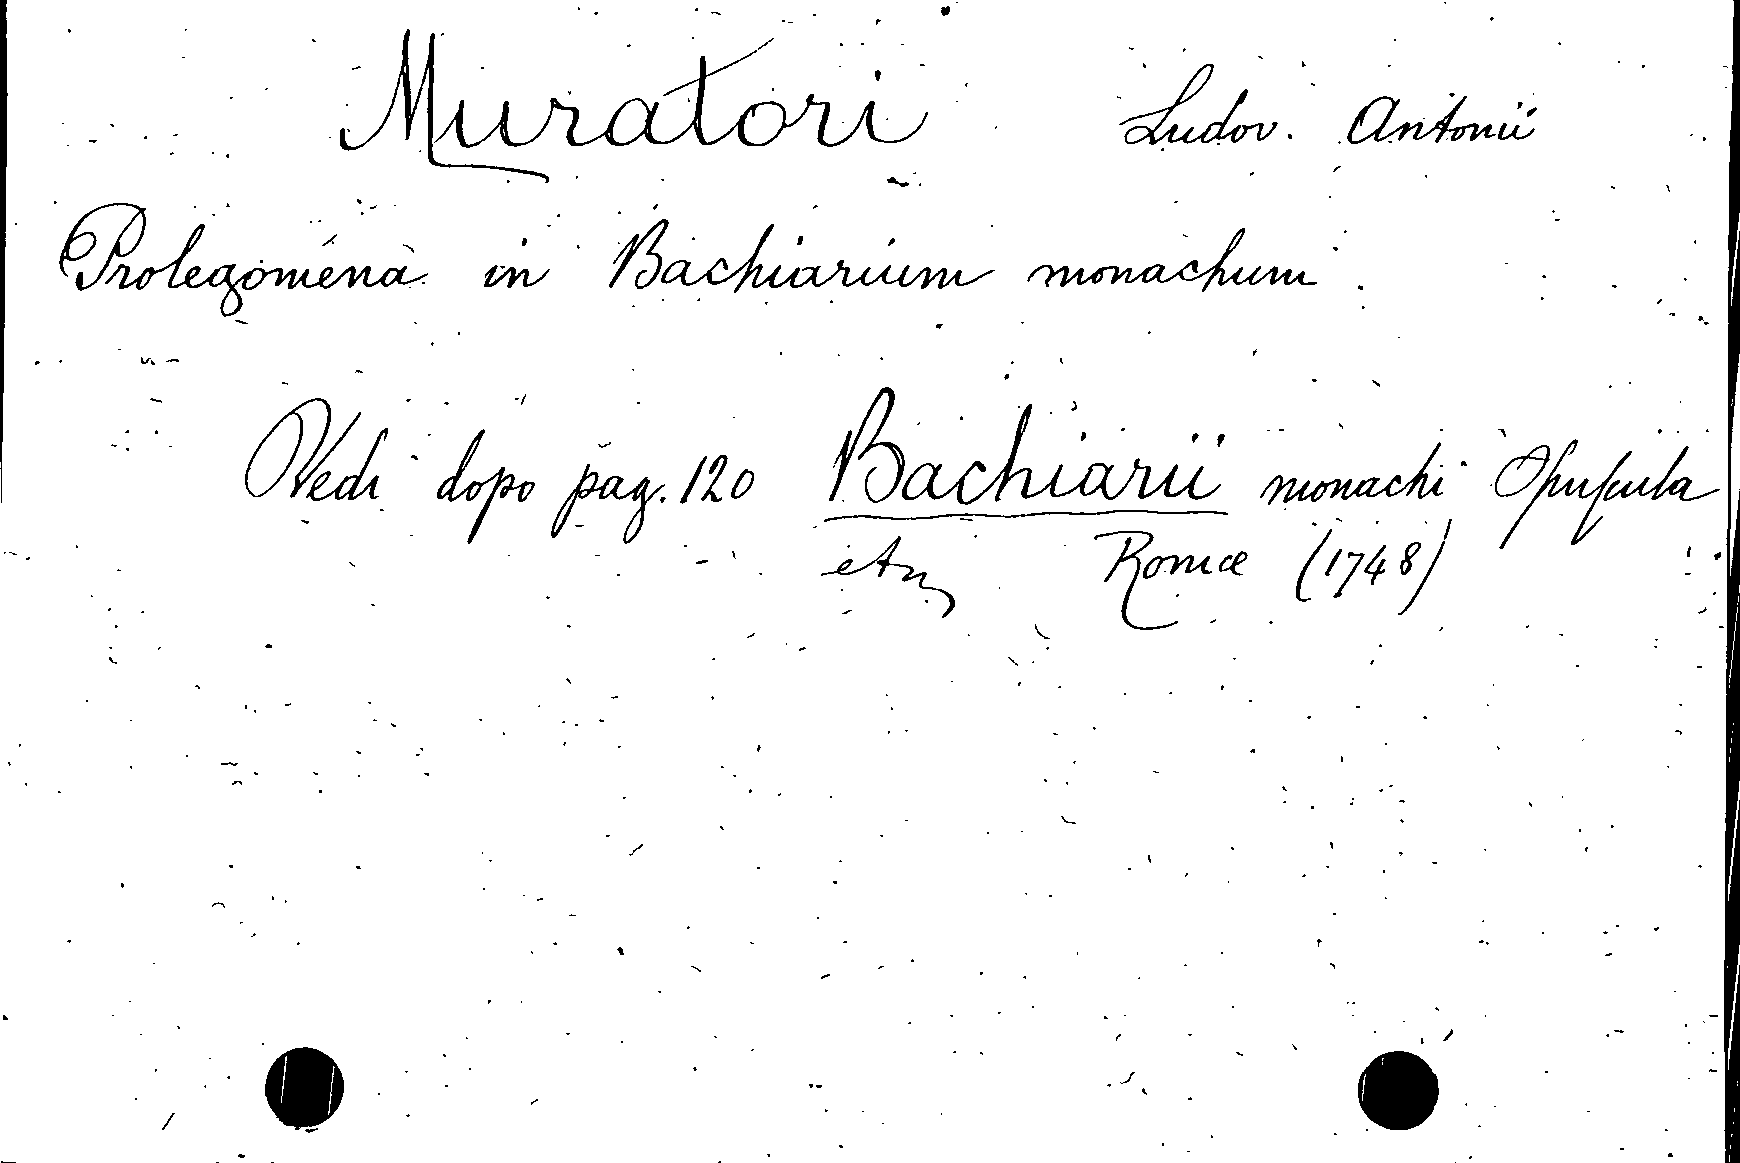 Muratori Ludov. Antonii
Prolegomena in Bachiarium monachum.
Vedi dopo pag. 120 Bachiarii monachi Opuscula
etc Romæ (1748)